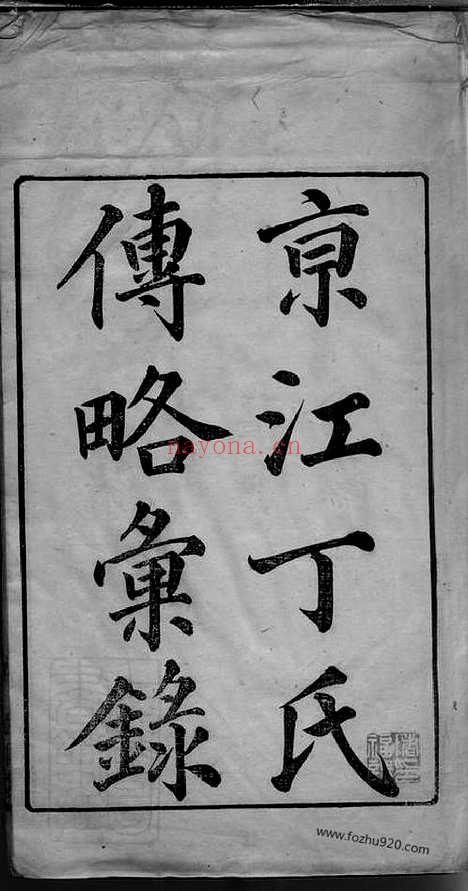 京江丁氏
傳略彙錄
nayona.cn
www.fozhu920.com